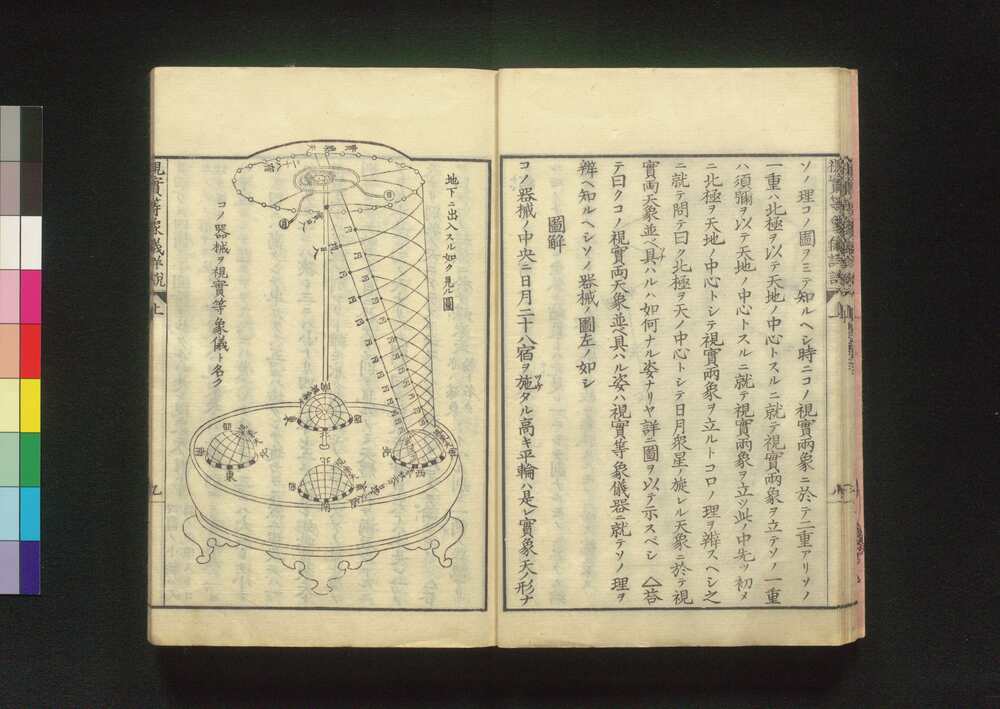 ソノ理コノ圖ヲミテ知ルヘシ時ニコノ視實兩象ニ於テ二重アリソノ
一重ハ北極ヲ以テ天地ノ中心トスルニ就テ視實兩象ヲ立テソノ一重
ハ須彌ヲ以テ天地ノ中心トスルニ就テ視實兩象ヲ立ツ此ノ中先ツ初メ
ニ北極ヲ天地ノ中心トシテ視實兩象ヲ立ルトコロノ理ヲ辨スヘシ之
ニ就テ問テ曰ク北極ヲ天ノ中心トシテ日月衆星ノ旋レル天象ニ於テ視
實兩天象並ヘ具ハルハ如何ナル姿ナリヤ詳ニ圖ヲ以テ示スベシ △答
テ曰クコノ視實兩天象並ヘ具ハル姿ハ視實等象儀器ニ就テソノ理ヲ
辨ヘ知ルヘシソノ器械ノ圖左ノ如シ
圖解
コノ器械ノ中央ニ日月二十八宿ヲ施タル高キ平輪ハ是レ實象天ノ形ナ
地下ニ出入スル如ク見ル圖
コノ器械ヲ視實等象儀ト名ク
視實等象儀詳説
上
九
北
東
南
西